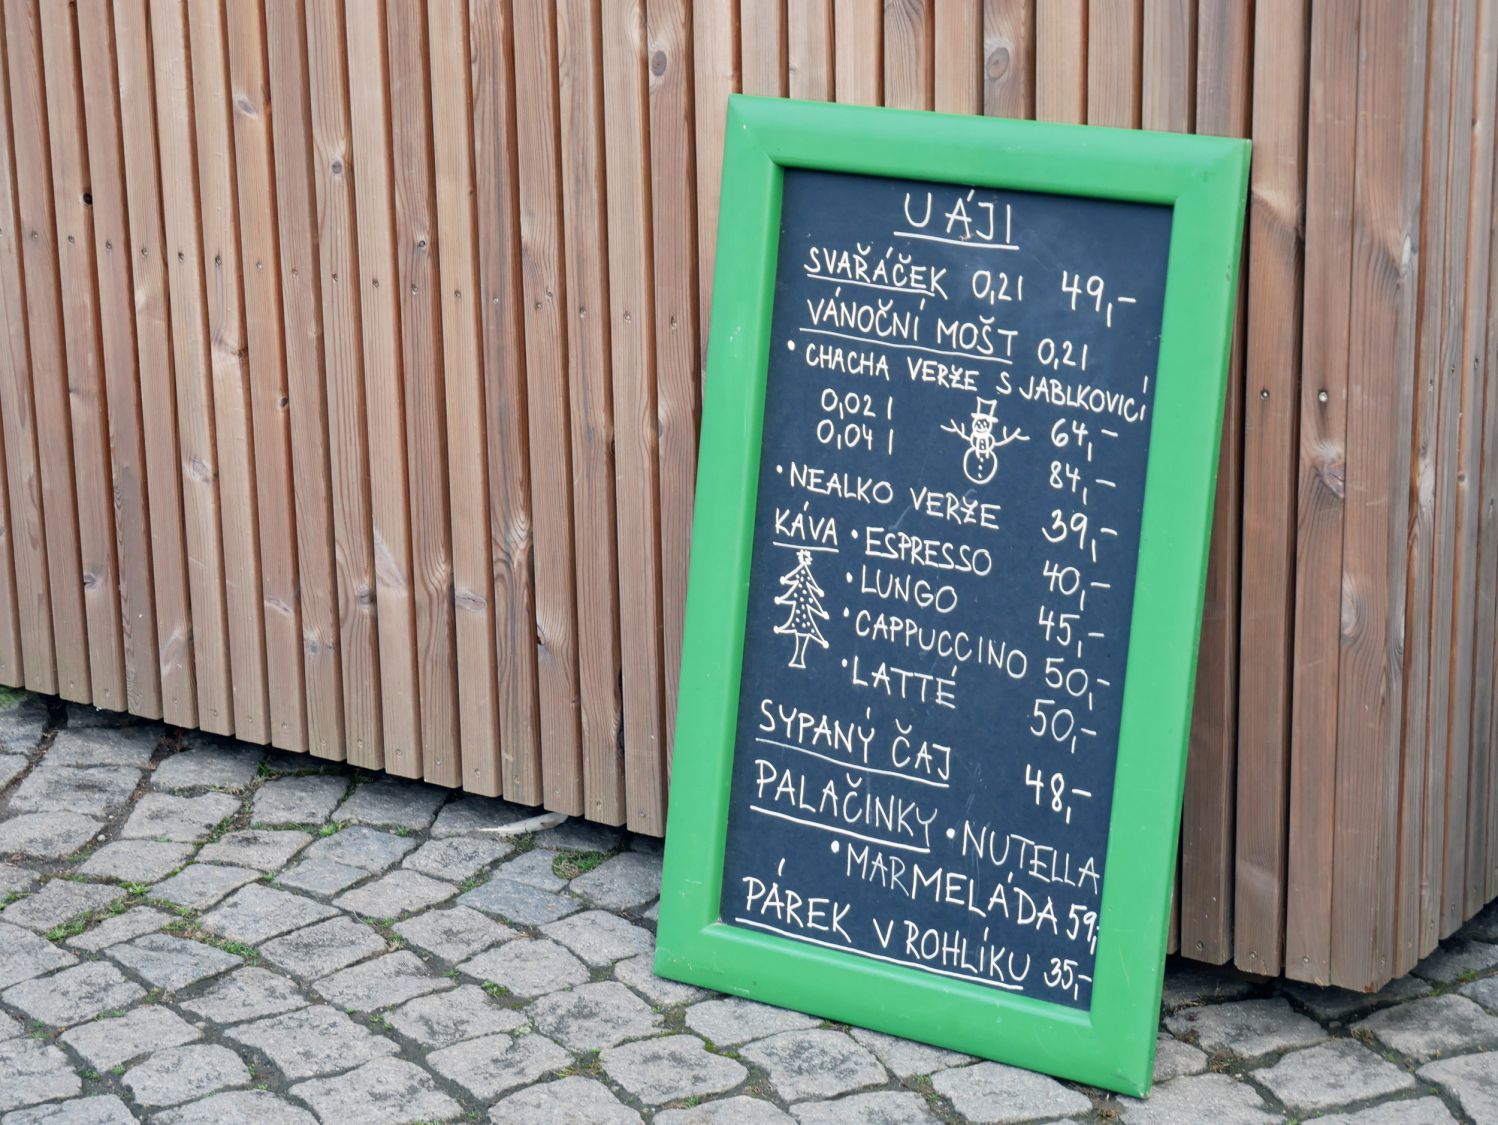 U ÁJI
SVAŘÁČEK 0,2l 49,-
VÁNOČNÍ MOŠT 0,2l
• CHACHA VERZE S JABLKOVICÍ
0,02 l 64,-
0,04 l 84,-
• NEALKO VERZE 39,-
KÁVA • ESPRESSO 40,-
• LUNGO 45,-
• CAPPUCCINO 50,-
• LATTÉ 50,-
SYPANÝ ČAJ 48,-
PALAČINKY • NUTELLA
• MARMELÁDA 59,-
PÁREK V ROHLÍKU 35,-